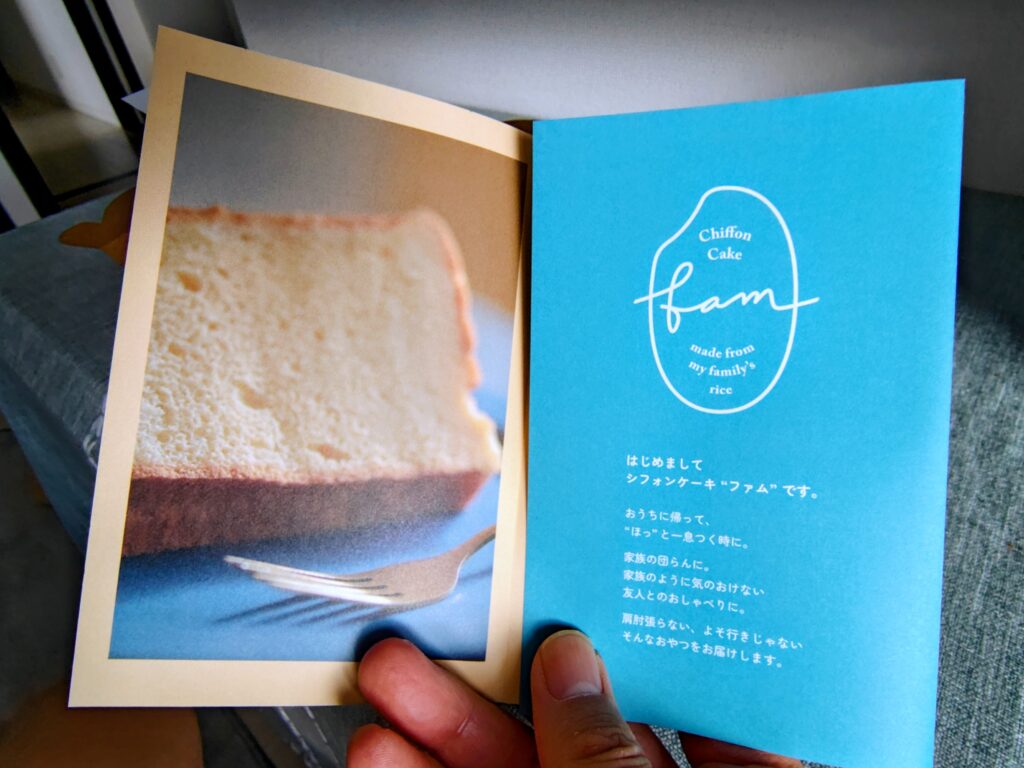 Chiffon
Cake
fam
made from
my family's
rice
はじめまして
シフォンケーキ“ファム”です。
おうちに帰って、
“ほっ”と一息つく時に。
家族の団らんに。
家族のように気のおけない
友人とのおしゃべりに。
肩肘張らない、よそ行きじゃない
そんなおやつをお届けします。